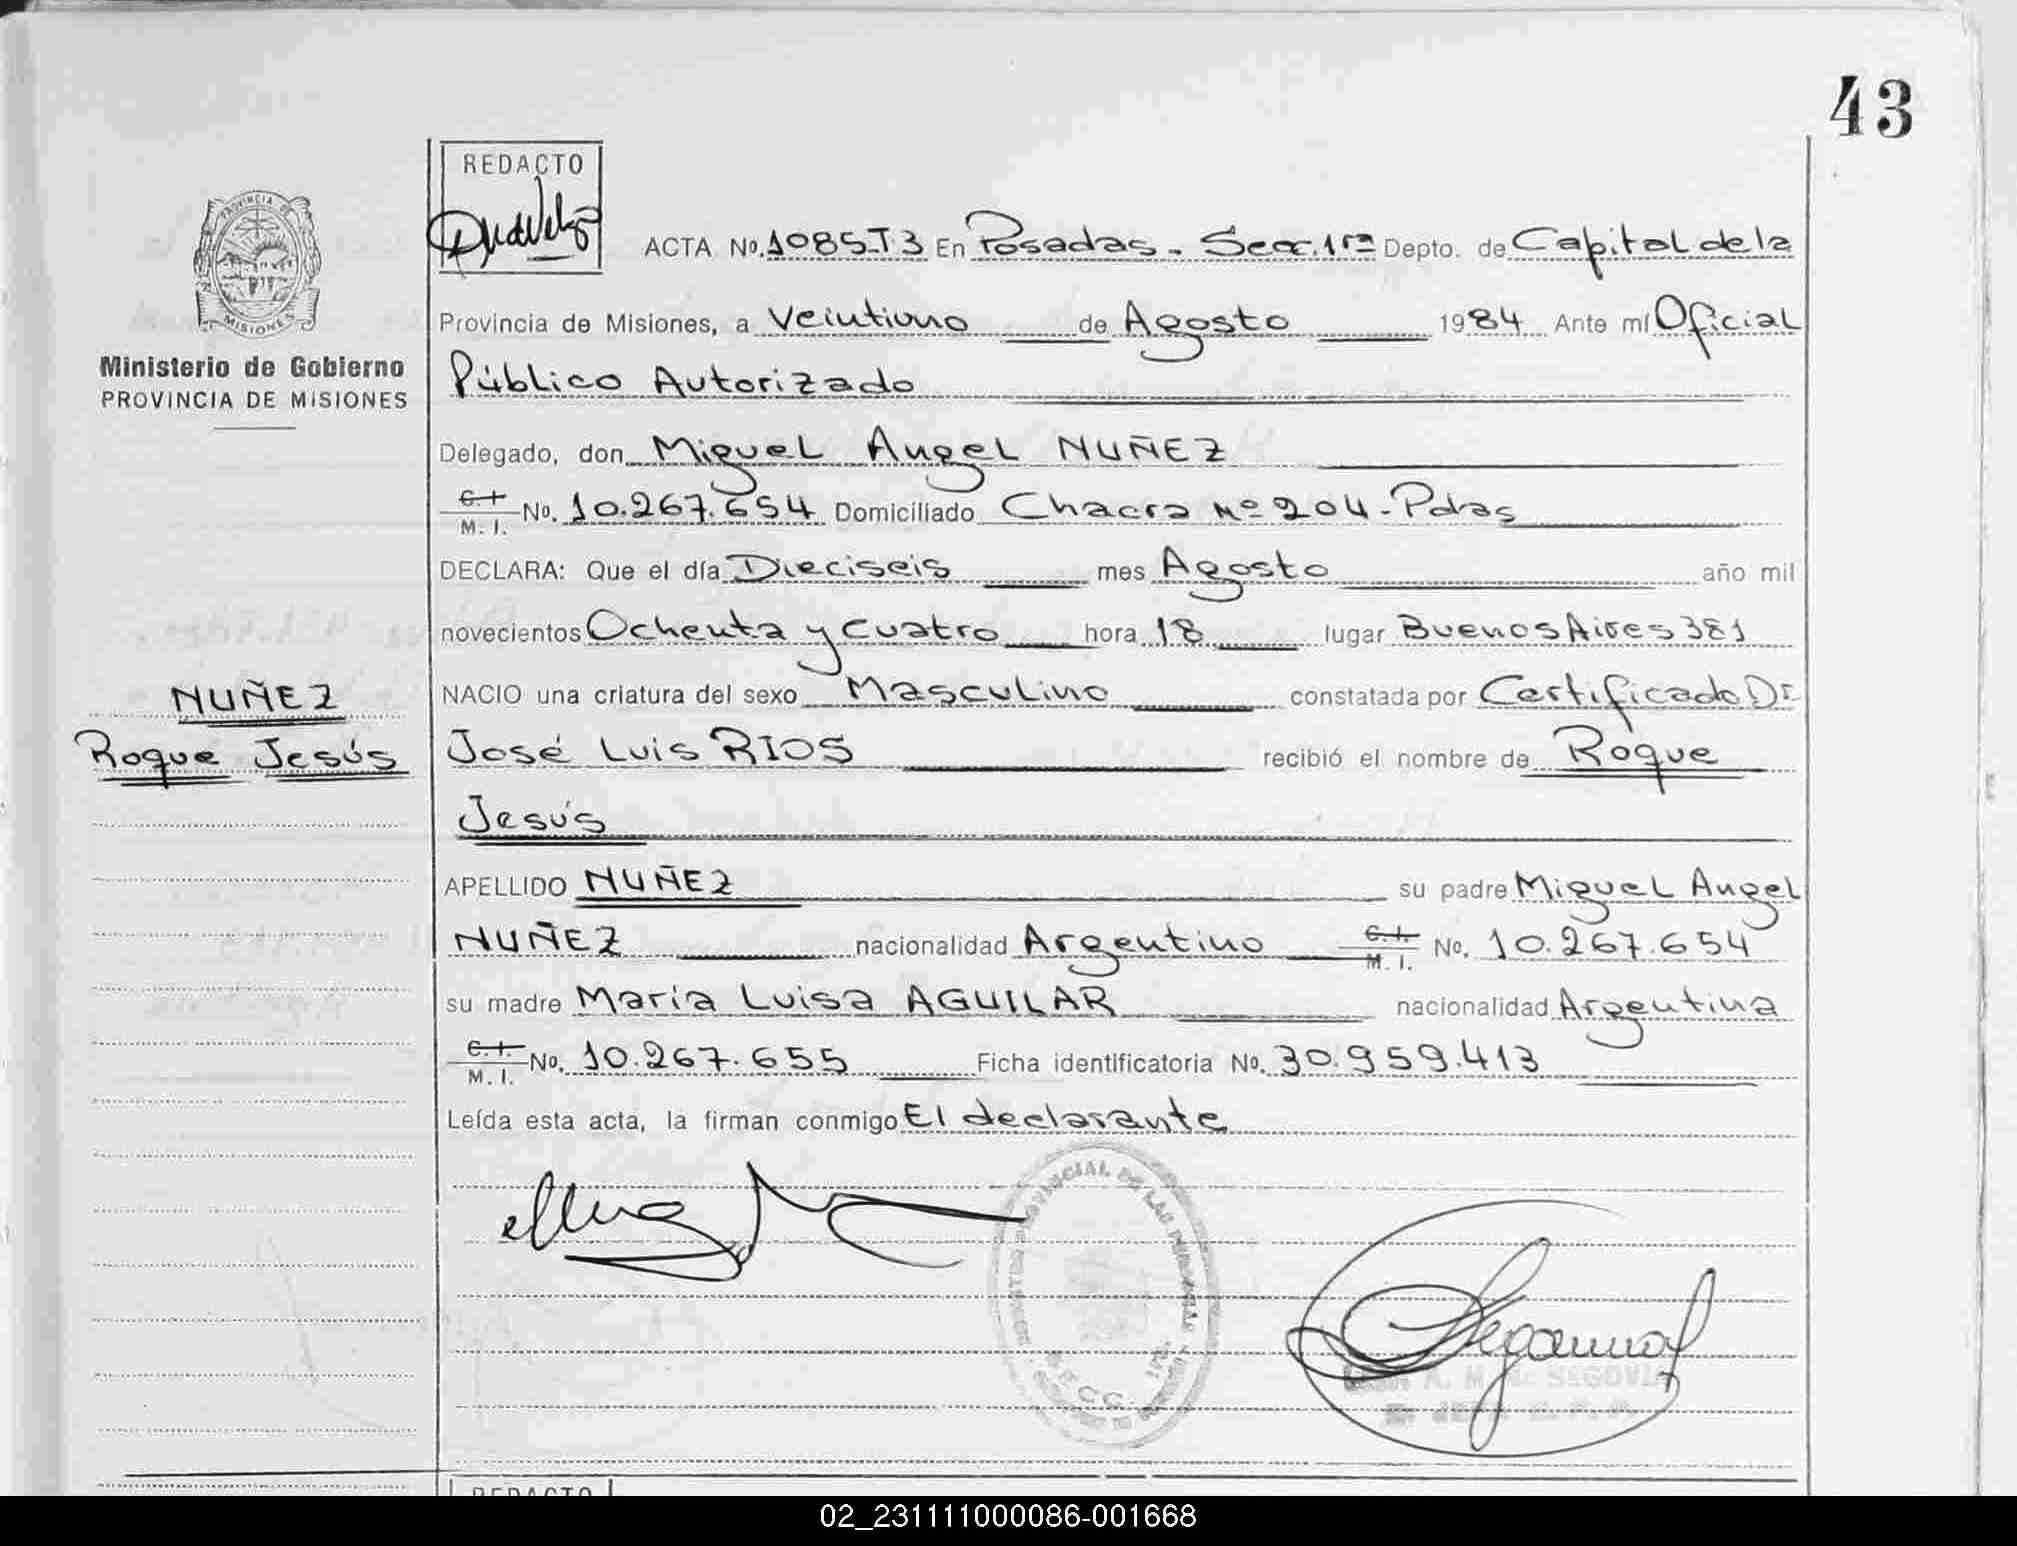 43
REDACTO
PROVINCIA DE
MISIONES
Ministerio de Gobierno
PROVINCIA DE MISIONES
ACTA No. 1085-T3 En Posadas - Secc. 1ra Depto. de Capital de la
Provincia de Misiones, a Veintiuno de Agosto 1984 Ante mí Oficial
Público Autorizado
Delegado, don Miguel Angel NUÑEZ
C.I. M. I. No. 10.267.654 Domiciliado Chacra Nº 204 - Pdas
DECLARA: Que el día Dieciseis mes Agosto año mil
novecientos Ochenta y cuatro hora 18 lugar Buenos Aires 381
NACIO una criatura del sexo Masculino constatada por Certificado Dr.
José Luis RIOS recibió el nombre de Roque
Jesús
NUÑEZ
Roque Jesús
APELLIDO NUÑEZ su padre Miguel Angel
NUÑEZ nacionalidad Argentino C.I. M. I. No. 10.267.654
su madre María Luisa AGUILAR nacionalidad Argentina
C.I. M. I. No. 10.267.655 Ficha identificatoria No. 30.959.413
Leída esta acta, la firman conmigo El declarante
PROVINCIAL DE LAS PERSONAS
A. M. SEGOVIA
REDACTO
02_231111000086-001668